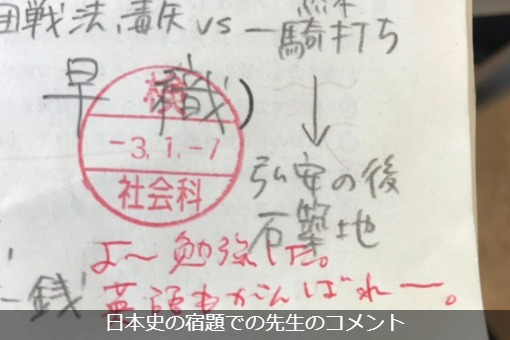 団戦法、毒矢 vs 一騎打ち
早 職)
検
-3.1.-7
社会科
↓
弘安の後
石築地
銭
よ〜勉強した。
英語もがんばれー。
日本史の宿題での先生のコメント